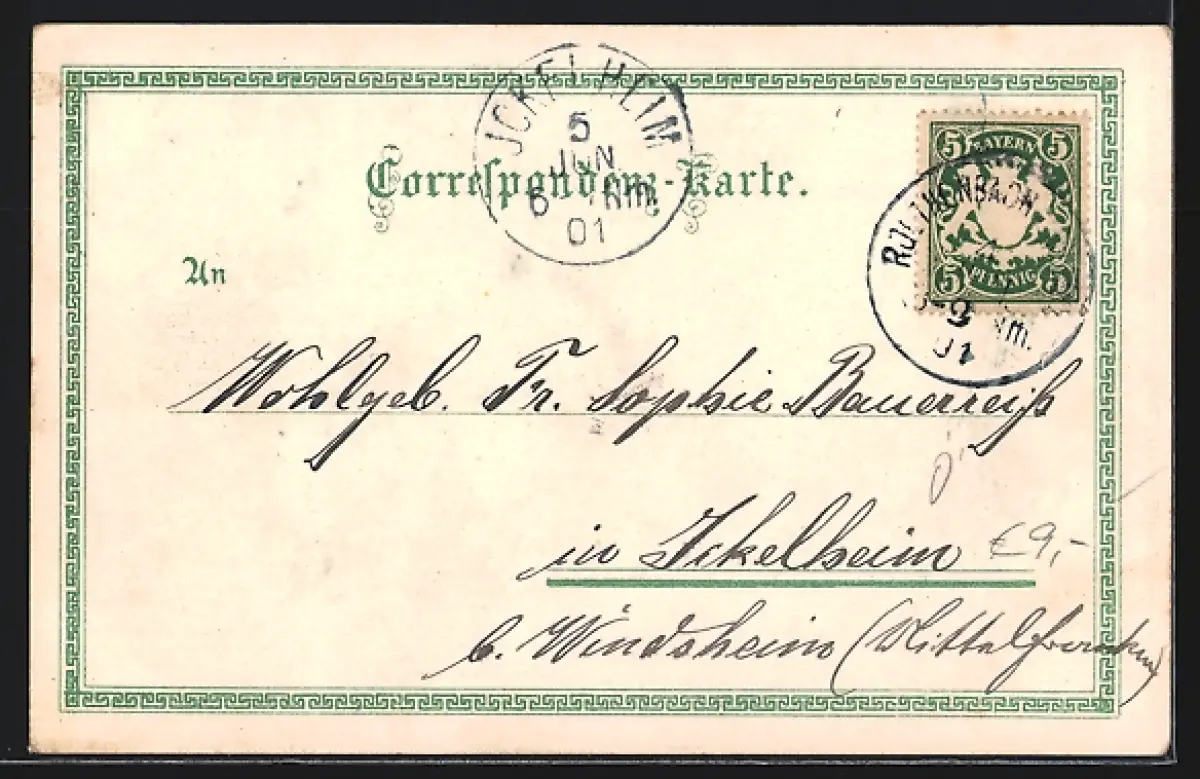 JCKELHEIM
5
JUN
6 Nm.
01
Correspondenz-Karte.
5 BAYERN 5
5 PFENNIG 5
An
Nm.
01
Wohlgeb. Fr. Sophie Bauerreiß
in Ickelheim €9,-
b. Windsheim (Mittelfranken)